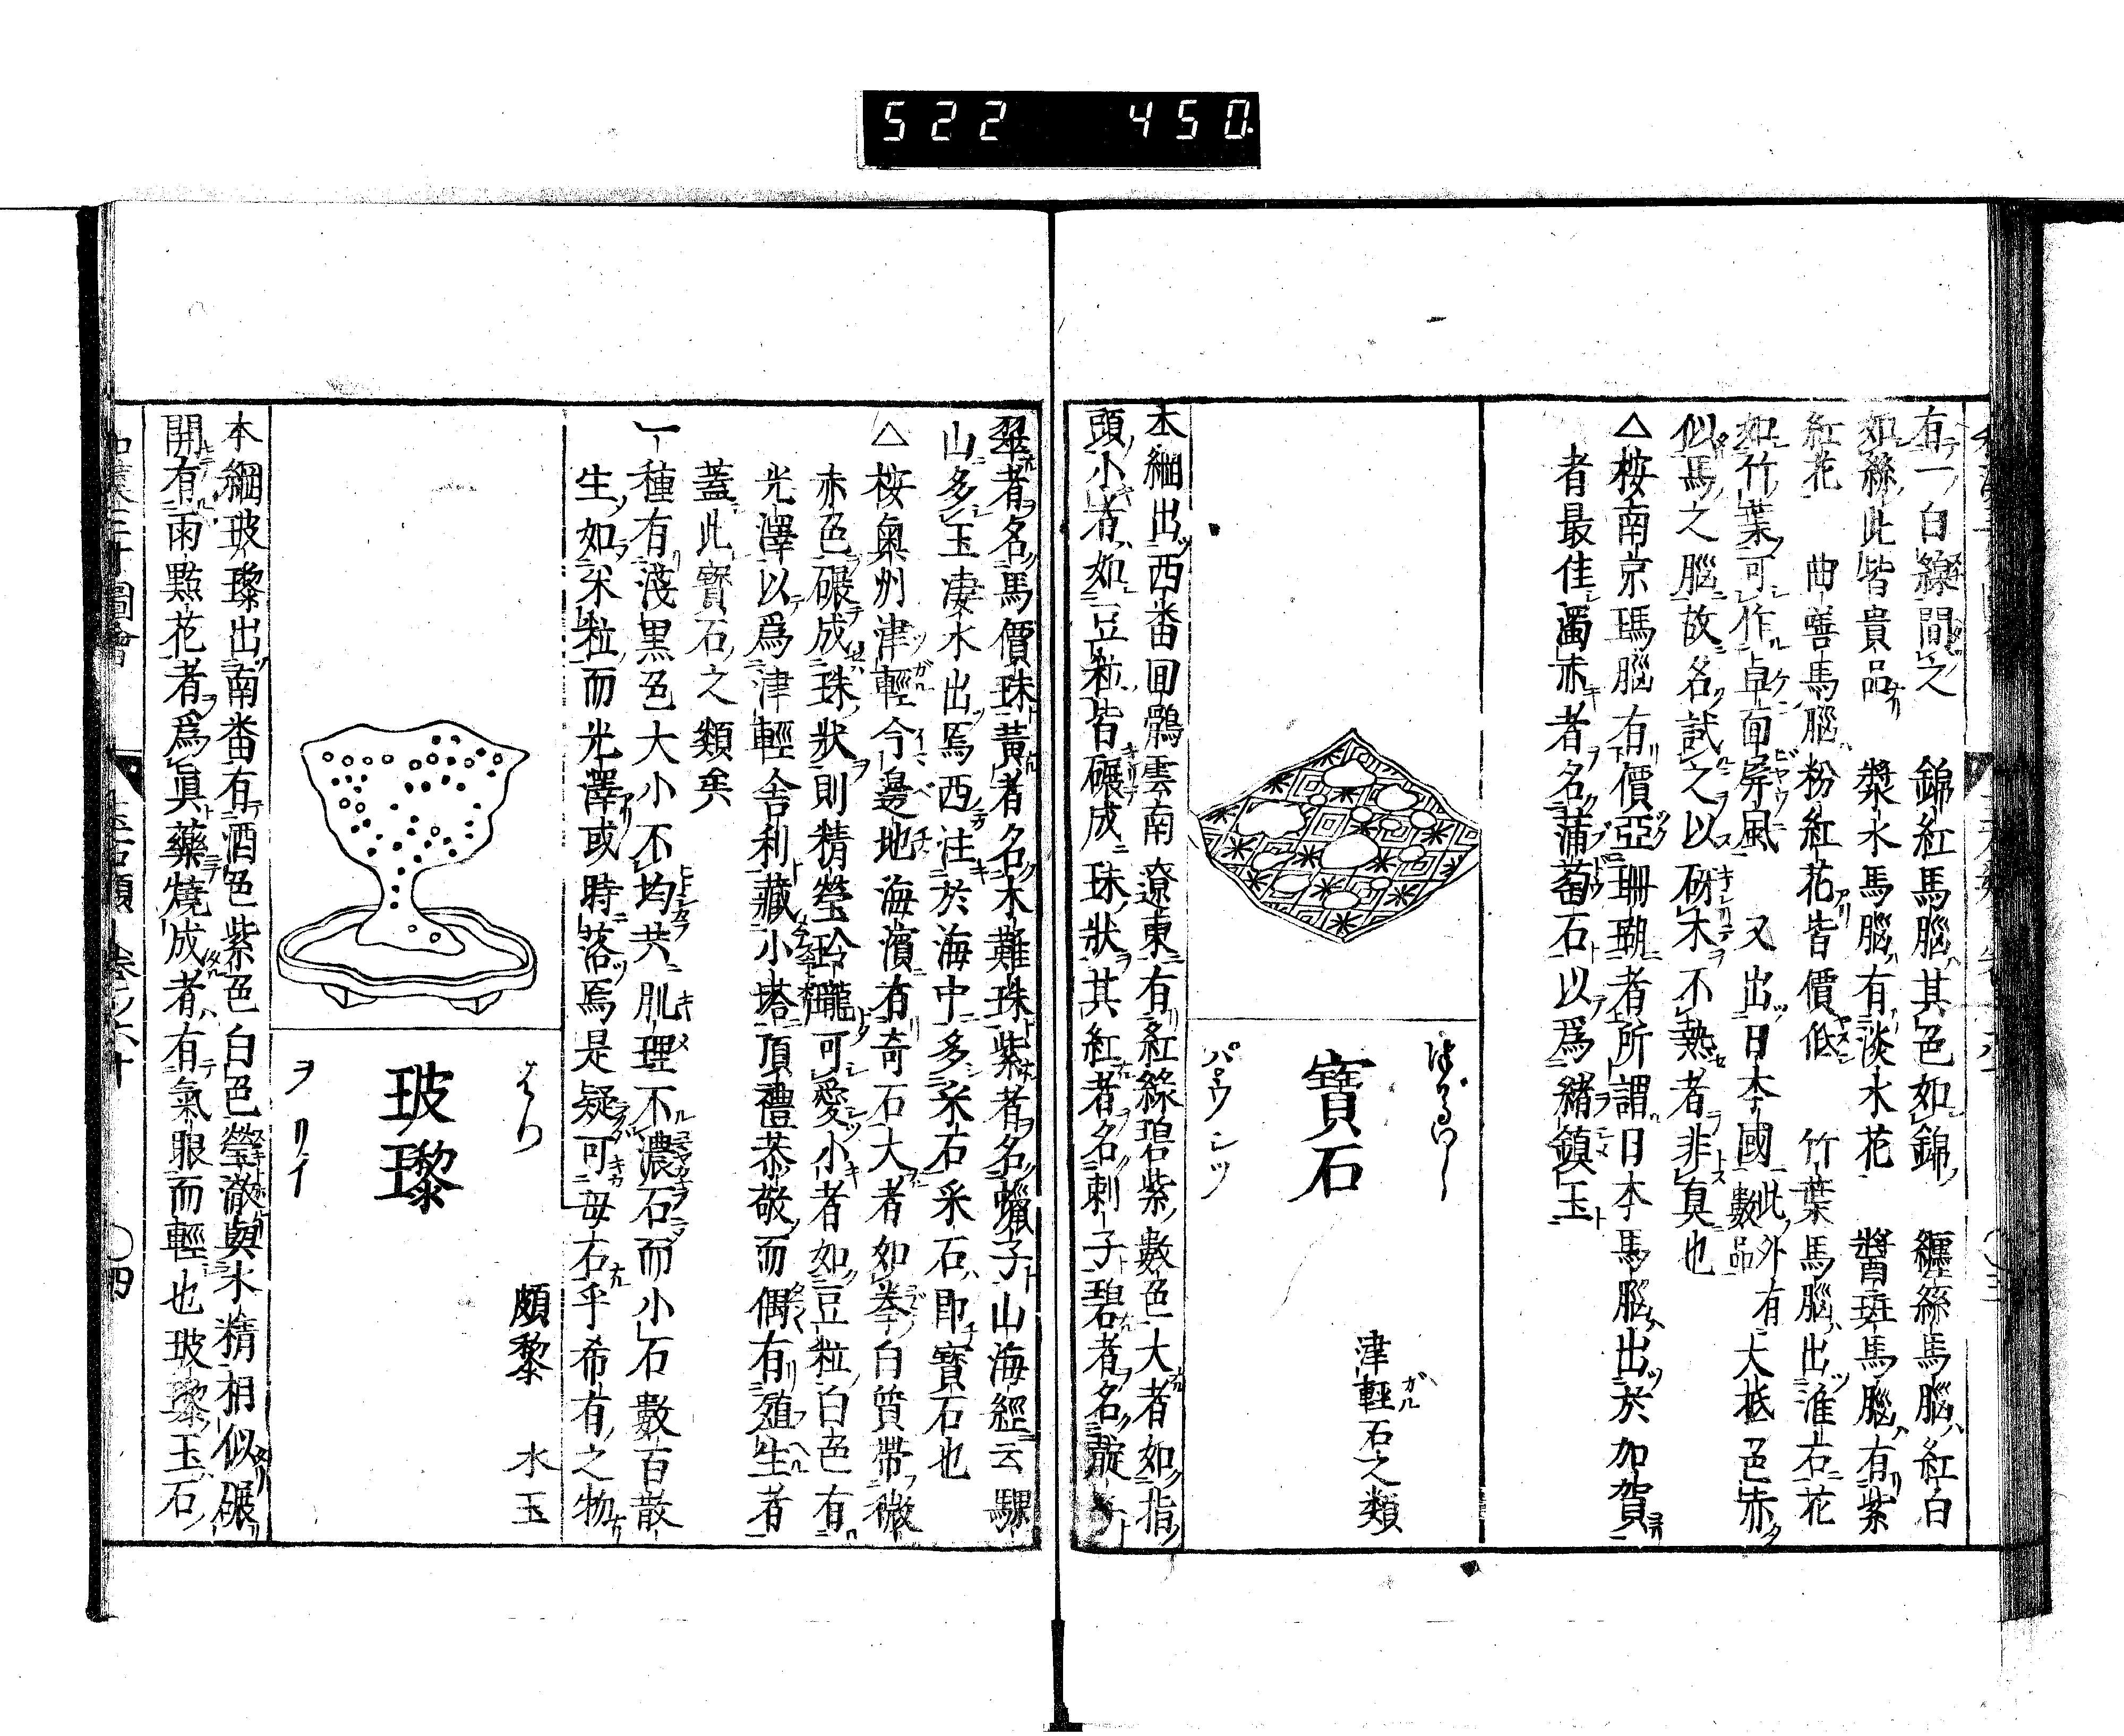 522 450.
有一白線間之 錦紅馬腦其色如錦 纏絲馬腦紅白
如絲此皆貴品 漿水馬腦有淡水花 醬斑馬腦有紫
紅花 曲蟮馬腦粉紅花皆價低 竹葉馬腦出淮右花
如竹葉可作卓面屏風 又出日本國 此外有數品 大抵色赤
似馬之腦故名試之以砑木不熱者非真也
△桉南京瑪腦有價亞珊瑚者所謂日本馬腦出於加賀
者最佳濁赤者名蒲萄石以爲緒鎮玉
寶石
パ゜ウ シツ
津輕石之類
本綱出西番回鶻雲南遼東有紅綠碧紫數色大者如指
頭小者如豆粒皆碾成珠狀其紅者名剌子碧者名靛子
翠者名馬價珠黃者名木難珠紫者名蠟子山海經云騩
山多玉凄水出焉西注於海中多采石采石即寶石也
△桉奧州津輕今邊地海濱有奇石大者如拳白質帶微
赤色碾成珠狀則精瑩玲瓏可愛小者如豆粒白色有
光澤以爲津輕舍利藏小塔頂禮恭敬而偶有殖生者
蓋此寶石之類矣
一種有淺黒色大小不均共肌理不濃石而小石數百散
生如米粒而光澤或時落焉是疑可毋石乎希有之物
はり
玻瓈
ヲ リイ
頗黎 水玉
本綱玻瓈出南番有酒色紫色白色瑩澈與水精相似碾
開有雨點花者爲眞藥燒成者有氣眼而輕也玻瓈玉石
〇四